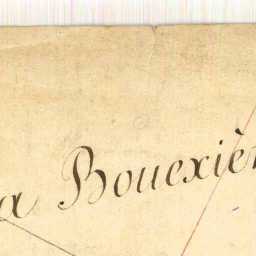 a Bouexièr